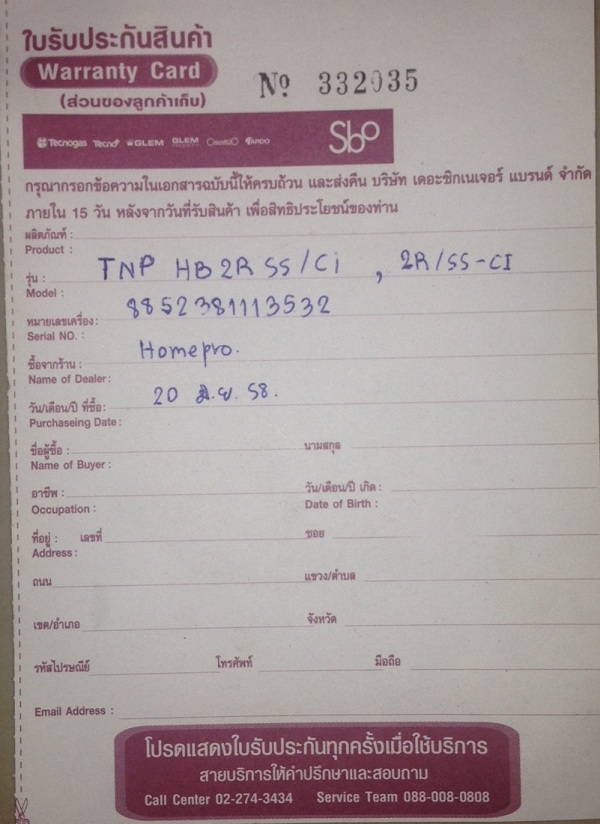 ใบรับประกันสินค้า
Warranty Card
(ส่วนของลูกค้าเก็บ)
Nº 332035
Tecnogas Tecno+ GLEM GLEM ARDO Sbo
กรุณากรอกข้อความในเอกสารฉบับนี้ให้ครบถ้วน และส่งคืน บริษัท เดอะซิกเนเจอร์ แบรนด์ จำกัด
ภายใน 15 วัน หลังจากวันที่รับสินค้า เพื่อสิทธิประโยชน์ของท่าน
ผลิตภัณฑ์ :
Product :
รุ่น : TNP HB2R SS/Ci , 2R/SS-CI
Model :
หมายเลขเครื่อง: 8852381113532
Serial NO. :
ซื้อจากร้าน : Homepro.
Name of Dealer:
วัน/เดือน/ปี ที่ซื้อ: 20 มิ.ย. 58.
Purchaseing Date:
ชื่อผู้ซื้อ : นามสกุล
Name of Buyer:
อาชีพ : วัน/เดือน/ปี เกิด :
Occupation : Date of Birth :
ที่อยู่ : เลขที่ ซอย
Address:
ถนน แขวง/ตำบล
เขต/อำเภอ จังหวัด
รหัสไปรษณีย์ โทรศัพท์ มือถือ
Email Address :
โปรดแสดงใบรับประกันทุกครั้งเมื่อใช้บริการ
สายบริการให้คำปรึกษาและสอบถาม
Call Center 02-274-3434 Service Team 088-008-0808